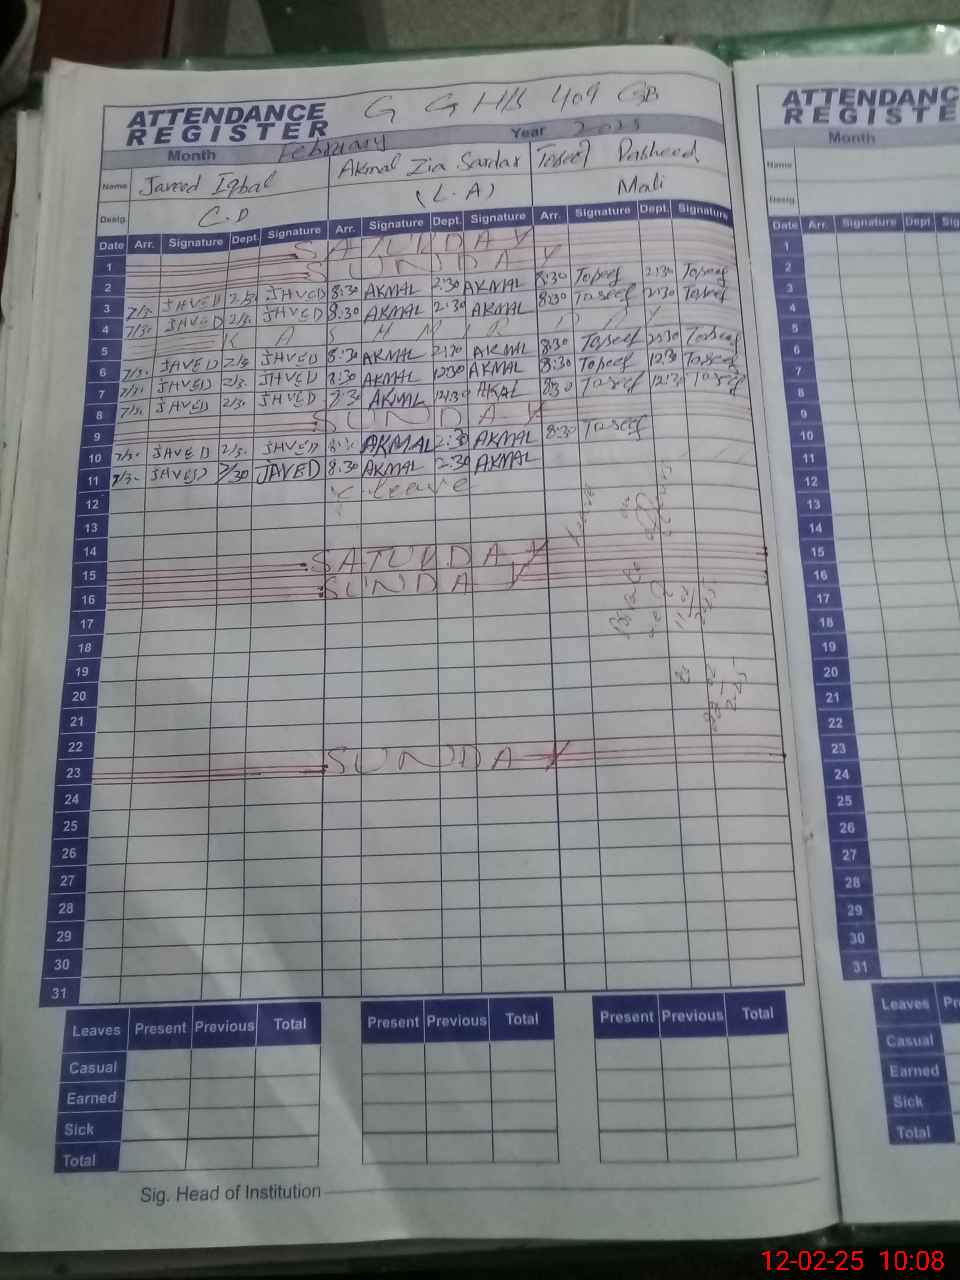 ATTENDANCE REGISTER G G HS 409 GB
Month February Year 2025
Name Javed Iqbal Akmal Zia Sardar Toseef Rasheed
Desig. C.D (L.A) Mali
Date Arr. Signature Dept. Signature Arr. Signature Dept. Signature Arr. Signature Dept. Signature
1 SATURDAY
2 SUNDAY
3 7/30 JAVED 2/30 JAVED 8:30 AKMAL 2:30 AKMAL 8:30 Toseef 2:30 Toseef
4 7/30 JAVED 2/30 JAVED 8:30 AKMAL 2:30 AKMAL 8:30 Toseef 2:30 Toseef
5 KASHMIR DAY
6 7/30 JAVED 2/30 JAVED 8:30 AKMAL 2:30 AKMAL 8:30 Toseef 2:30 Toseef
7 7/30 JAVED 2/30 JAVED 8:30 AKMAL 12:30 AKMAL 8:30 Toseef 12:30 Toseef
8 7/30 JAVED 2/30 JAVED AKMAL 12:30 AKAL 8:30 Toseef 12:30 Toseef
9 SUNDAY
10 7/30 JAVED 2/30 JAVED 8:30 AKMAL 2:30 AKMAL 8:30 Toseef
11 7/30 JAVED 2/30 JAVED 8:30 AKMAL 2:30 AKMAL
12 leave
13
14
15 SATURDAY
16 SUNDAY
17
18
19
20
21
22
23 SUNDAY
24
25
26
27
28
29
30
31
Leaves Present Previous Total Present Previous Total Present Previous Total
Casual
Earned
Sick
Total
Sig. Head of Institution
ATTENDANC
REGISTE
Month
Name
Desig.
Date Arr. Signature Dept.
1
2
3
4
5
6
7
8
9
10
11
12
13
14
15
16
17
18
19
20
21
22
23
24
25
26
27
28
29
30
31
Leaves
Casual
Earned
Sick
Total
12-02-25 10:08